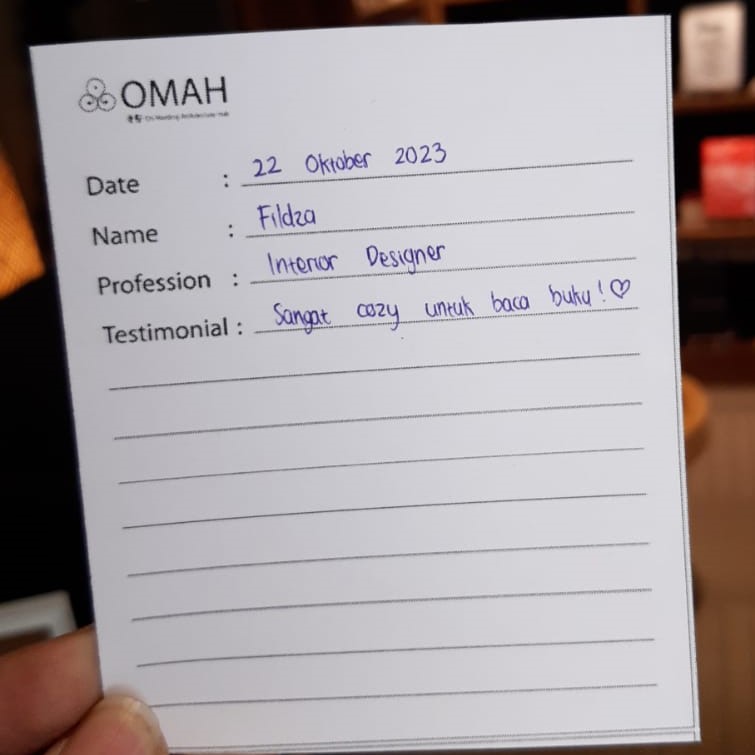 OMAH
Date : 22 Oktober 2023
Name : Fildza
Profession : Interior Designer
Testimonial : Sangat cozy untuk baca buku! ♡